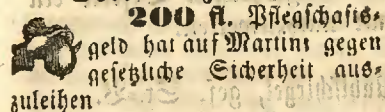 200 fl. Pflegschafts-
geld hat auf Martini gegen
gesetzliche Sicherheit aus-
zuleihen